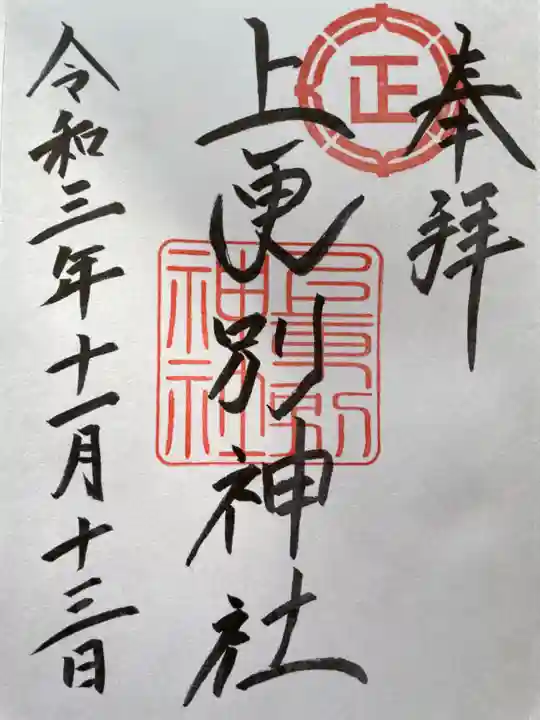 奉拝
正
上更別神社
上更別
神社
令和三年十一月十三日